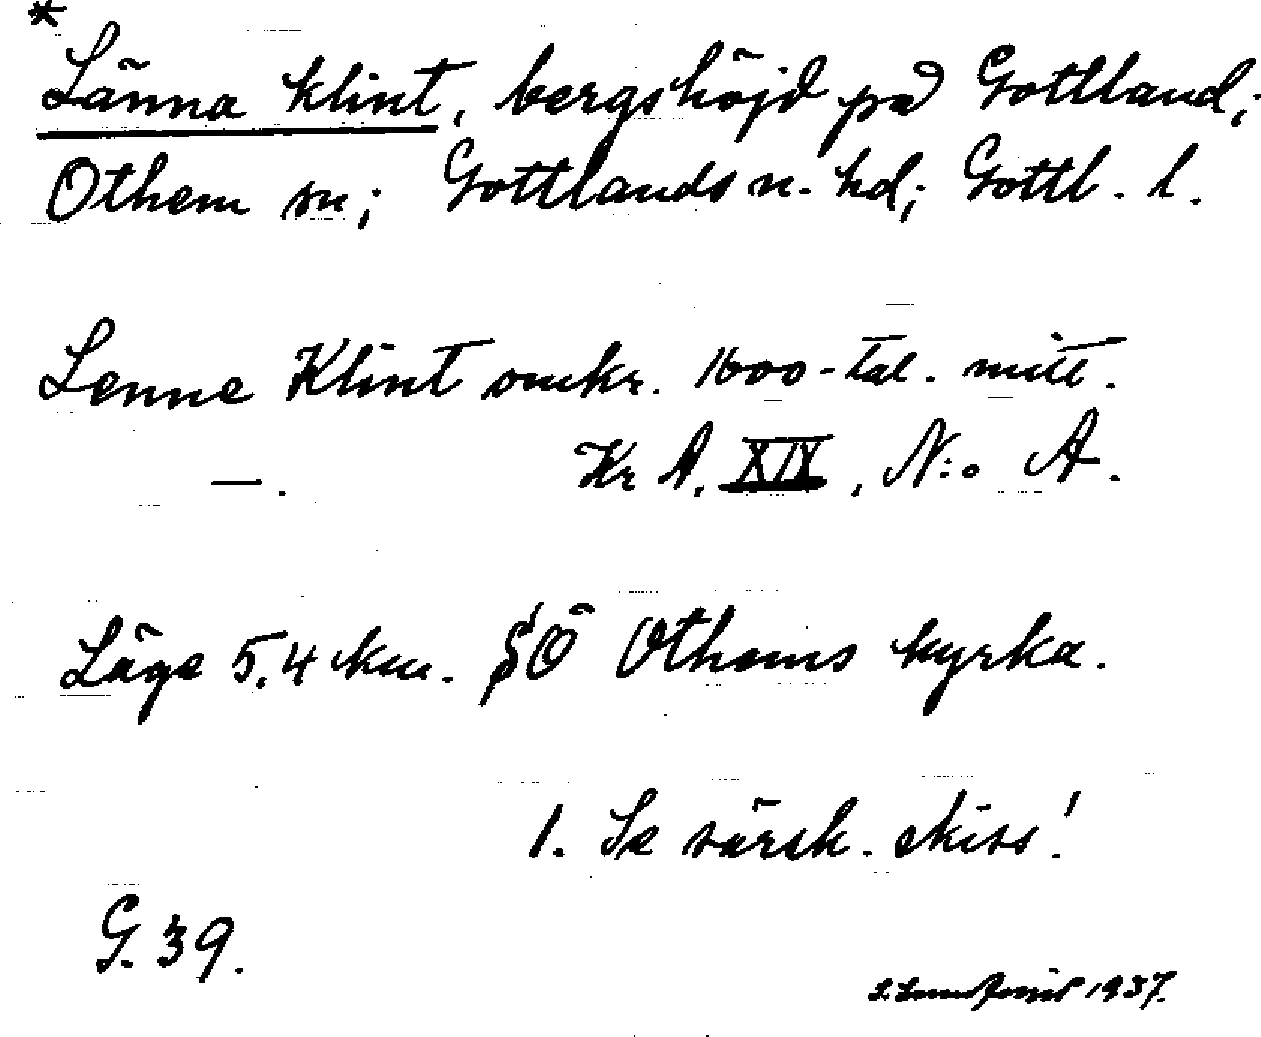 *
Länna klint, bergshöjd på Gottland;
Othem sn; Gottlands n. hd; Gottl. l.
Lenne Klint omkr. 1600-tal. mitt.
—. Kr A. XIX, N:o A.
Läge 5,4 km. SÖ Othems kyrka.
1. Se särsk. skiss!
G. 39.
1937.